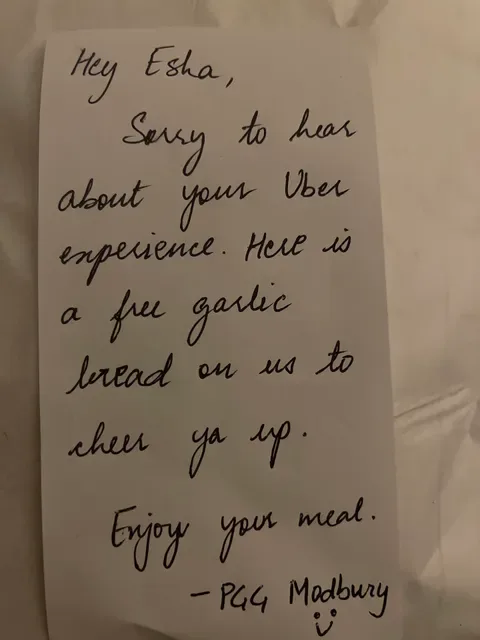 Hey Esha,
Sorry to hear
about your Uber
experience. Here is
a free garlic
bread on us to
cheer ya up.
Enjoy your meal.
- PGG Modbury